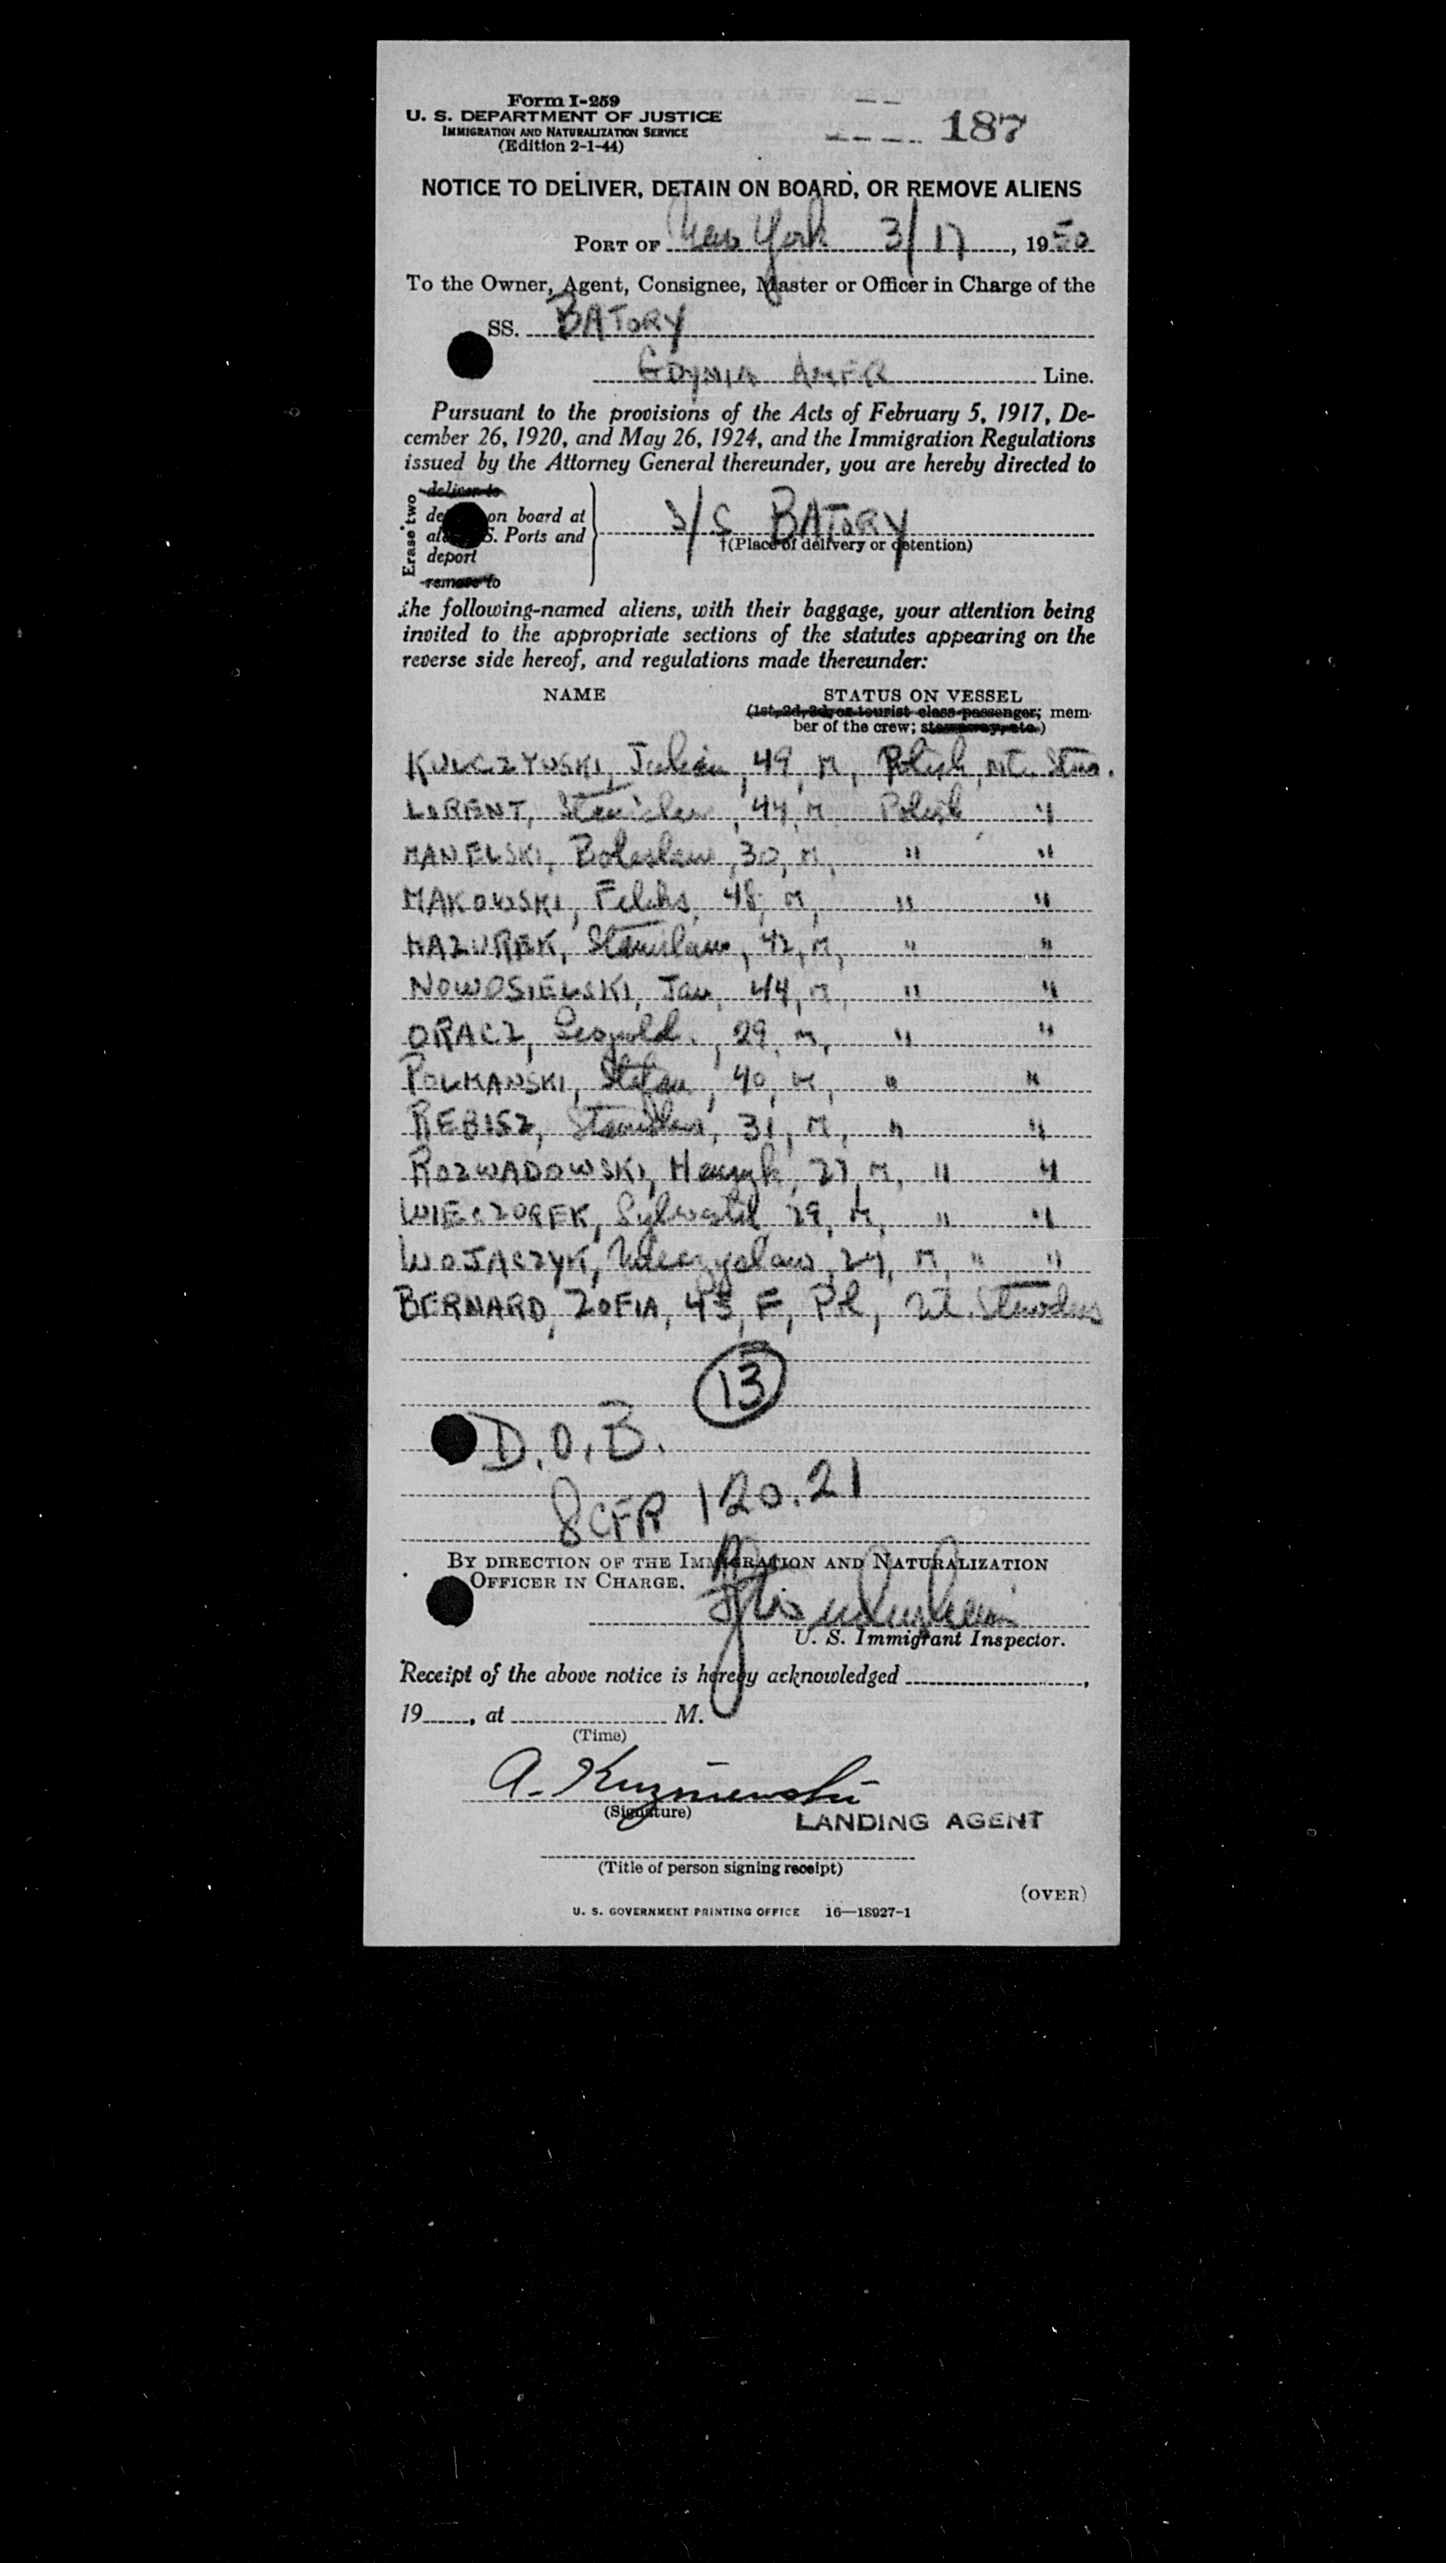 Form I-259
U. S. DEPARTMENT OF JUSTICE
IMMIGRATION AND NATURALIZATION SERVICE
(Edition 2-1-44)
187
NOTICE TO DELIVER, DETAIN ON BOARD, OR REMOVE ALIENS
PORT OF New York 3/17, 1950
To the Owner, Agent, Consignee, Master or Officer in Charge of the
SS. BATORY
GDYNIA AMER Line.
Pursuant to the provisions of the Acts of February 5, 1917, De-
cember 26, 1920, and May 26, 1924, and the Immigration Regulations
issued by the Attorney General thereunder, you are hereby directed to
Erase two
deliver to
on board at
S. Ports and
deport
remove to
S/S BATORY
†(Place of delivery or detention)
the following-named aliens, with their baggage, your attention being
invited to the appropriate sections of the statutes appearing on the
reverse side hereof, and regulations made thereunder:
NAME STATUS ON VESSEL
(1st, 2d, 3d, or tourist class passenger; mem-
ber of the crew; stowaway, etc.)
KULCZYNSKI, Julian, 49, M, Polish, nt. Stwd.
LORENT, Stanislaw, 44, M Polish "
MANELSKI, Boleslaw, 30, M, " "
MAKOWSKI, Feliks, 48, M, " "
MAZUREK, Stanislaw, 42, M, " "
NOWOSIELSKI, Jan, 44, M, " "
ORACZ, Leopold, 29, M, " "
POLKANSKI, Stefan, 40, M, " "
REBISZ, Stanislaw, 31, M, " "
ROZWADOWSKI, Henryk, 27, M, " "
WIECZOREK, Sylwester 29, M, " "
WOJACZYK, Mieczyslaw, 24, M, " "
BERNARD, ZOFIA, 43, F, Pol,
13
D.O.B.
8 CFR 120.21
BY DIRECTION OF THE IMMIGRATION AND NATURALIZATION
OFFICER IN CHARGE.
U. S. Immigrant Inspector.
Receipt of the above notice is hereby acknowledged ,
19 , at M.
(Time)
A. Kuzniewski
(Signature)
LANDING AGENT
(Title of person signing receipt)
(OVER)
U. S. GOVERNMENT PRINTING OFFICE 16—18927-1